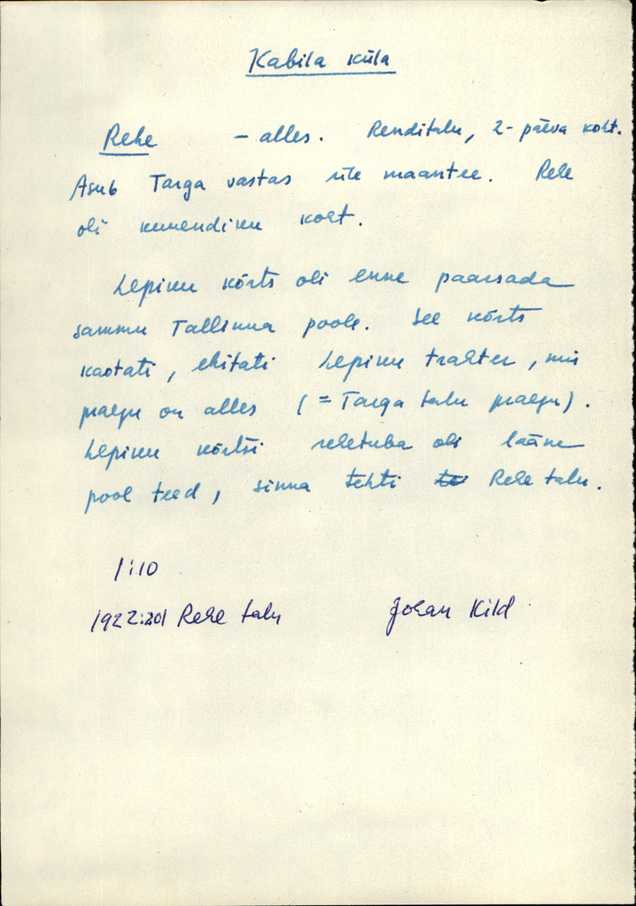 Kabila küla
Rehe – alles. Renditalu, 2-päeva koht.
Asub Targa vastas üle maantee. Rehe
oli kümendiku koht.
Lepiku kõrts oli enne paarsada
sammu Tallinna poole. See kõrts
kaotati, ehitati Lepiku trahter, mis
praegu on alles (= Targa talu praegu).
Lepiku kõrtsi rehetuba oli lääne
pool teed, sinna tehti Rehe talu.
1:10
1922:201 Rehe talu Johan Kild